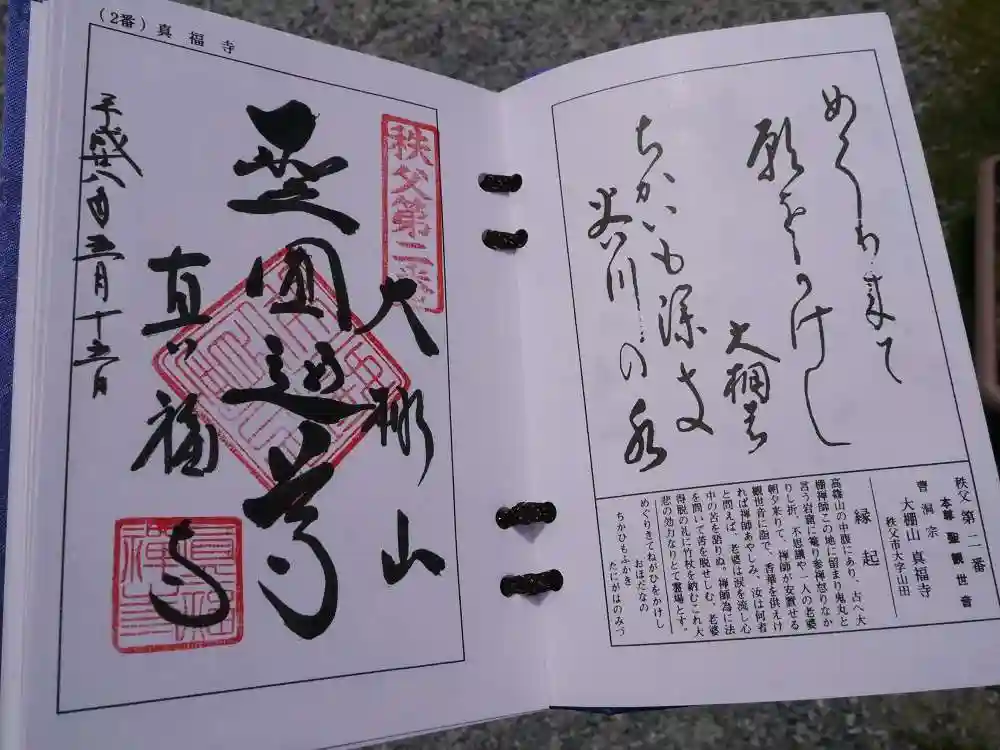 (2番)真福寺
秩父第二番
大棚山
真福寺
平成廿八年五月十五日
願をかけし
ちかいも深き
秩父第二番
本尊 聖観世音
曹洞宗
大棚山 真福寺
秩父市大字山田
縁起
高篠山の中腹にあり、古へ大
棚禅師この地に留まり鬼丸と
言う岩窟に篭り参禅怒りなか
りし折、不思議や一人の老婆
朝夕来りて、禅師が安置せる
観世音に詣で、香華を供えけ
れば禅師あやしみ、汝は何者
と問えば、老婆は涙を流し心
中の苦を語りぬ。禅師為に法
を問いて苦を脱せしむ。老婆
得脱の礼に竹杖を納むこれ大
悲の効力なりとて霊場とす。
めぐりきてねがひをかけし
おほだなの
ちかひもふかき
たにがはのみづ